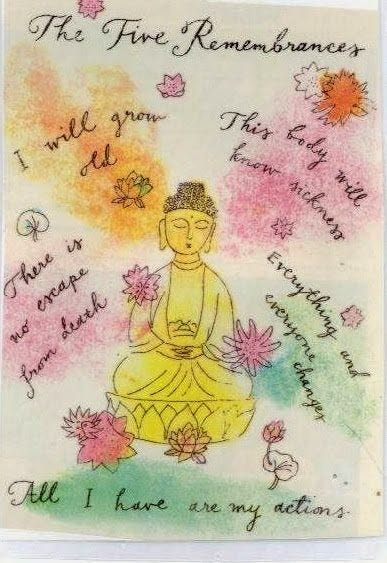 The Five Remembrances
I will grow
old
This body will
know sickness
There is
no escape
from death
Everything and
everyone changes
All I have are my actions.